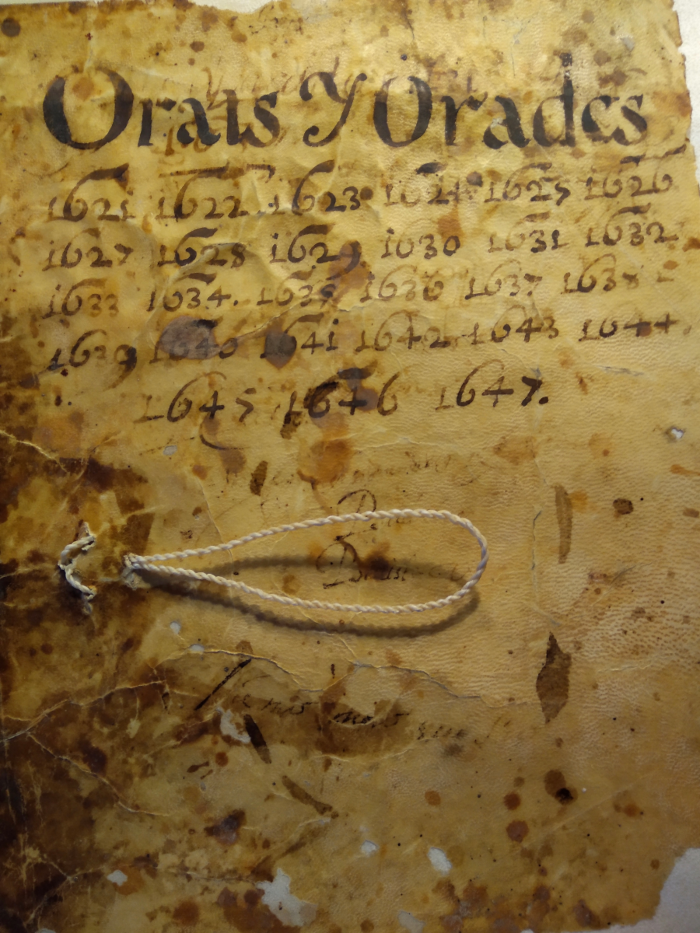 Orats Y Orades
1621 1622 1623 1624 1625 1626
1627 1628 1629 1630 1631 1632
1633 1634. 1635 1636 1637 1638
1639 1640 1641 1642 1643 1644
1645 1646 1647.